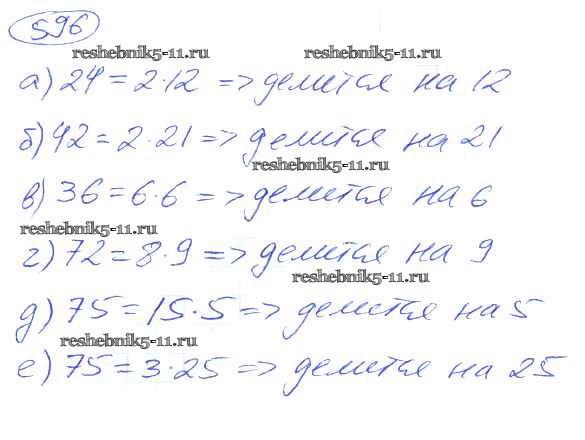 596
reshebnik5-11.ru reshebnik5-11.ru
а) 24 = 2·12 => делится на 12
б) 42 = 2·21 => делится на 21
reshebnik5-11.ru
в) 36 = 6·6 => делится на 6
reshebnik5-11.ru
г) 72 = 8·9 => делится на 9
reshebnik5-11.ru
д) 75 = 15·5 => делится на 5
reshebnik5-11.ru
е) 75 = 3·25 => делится на 25